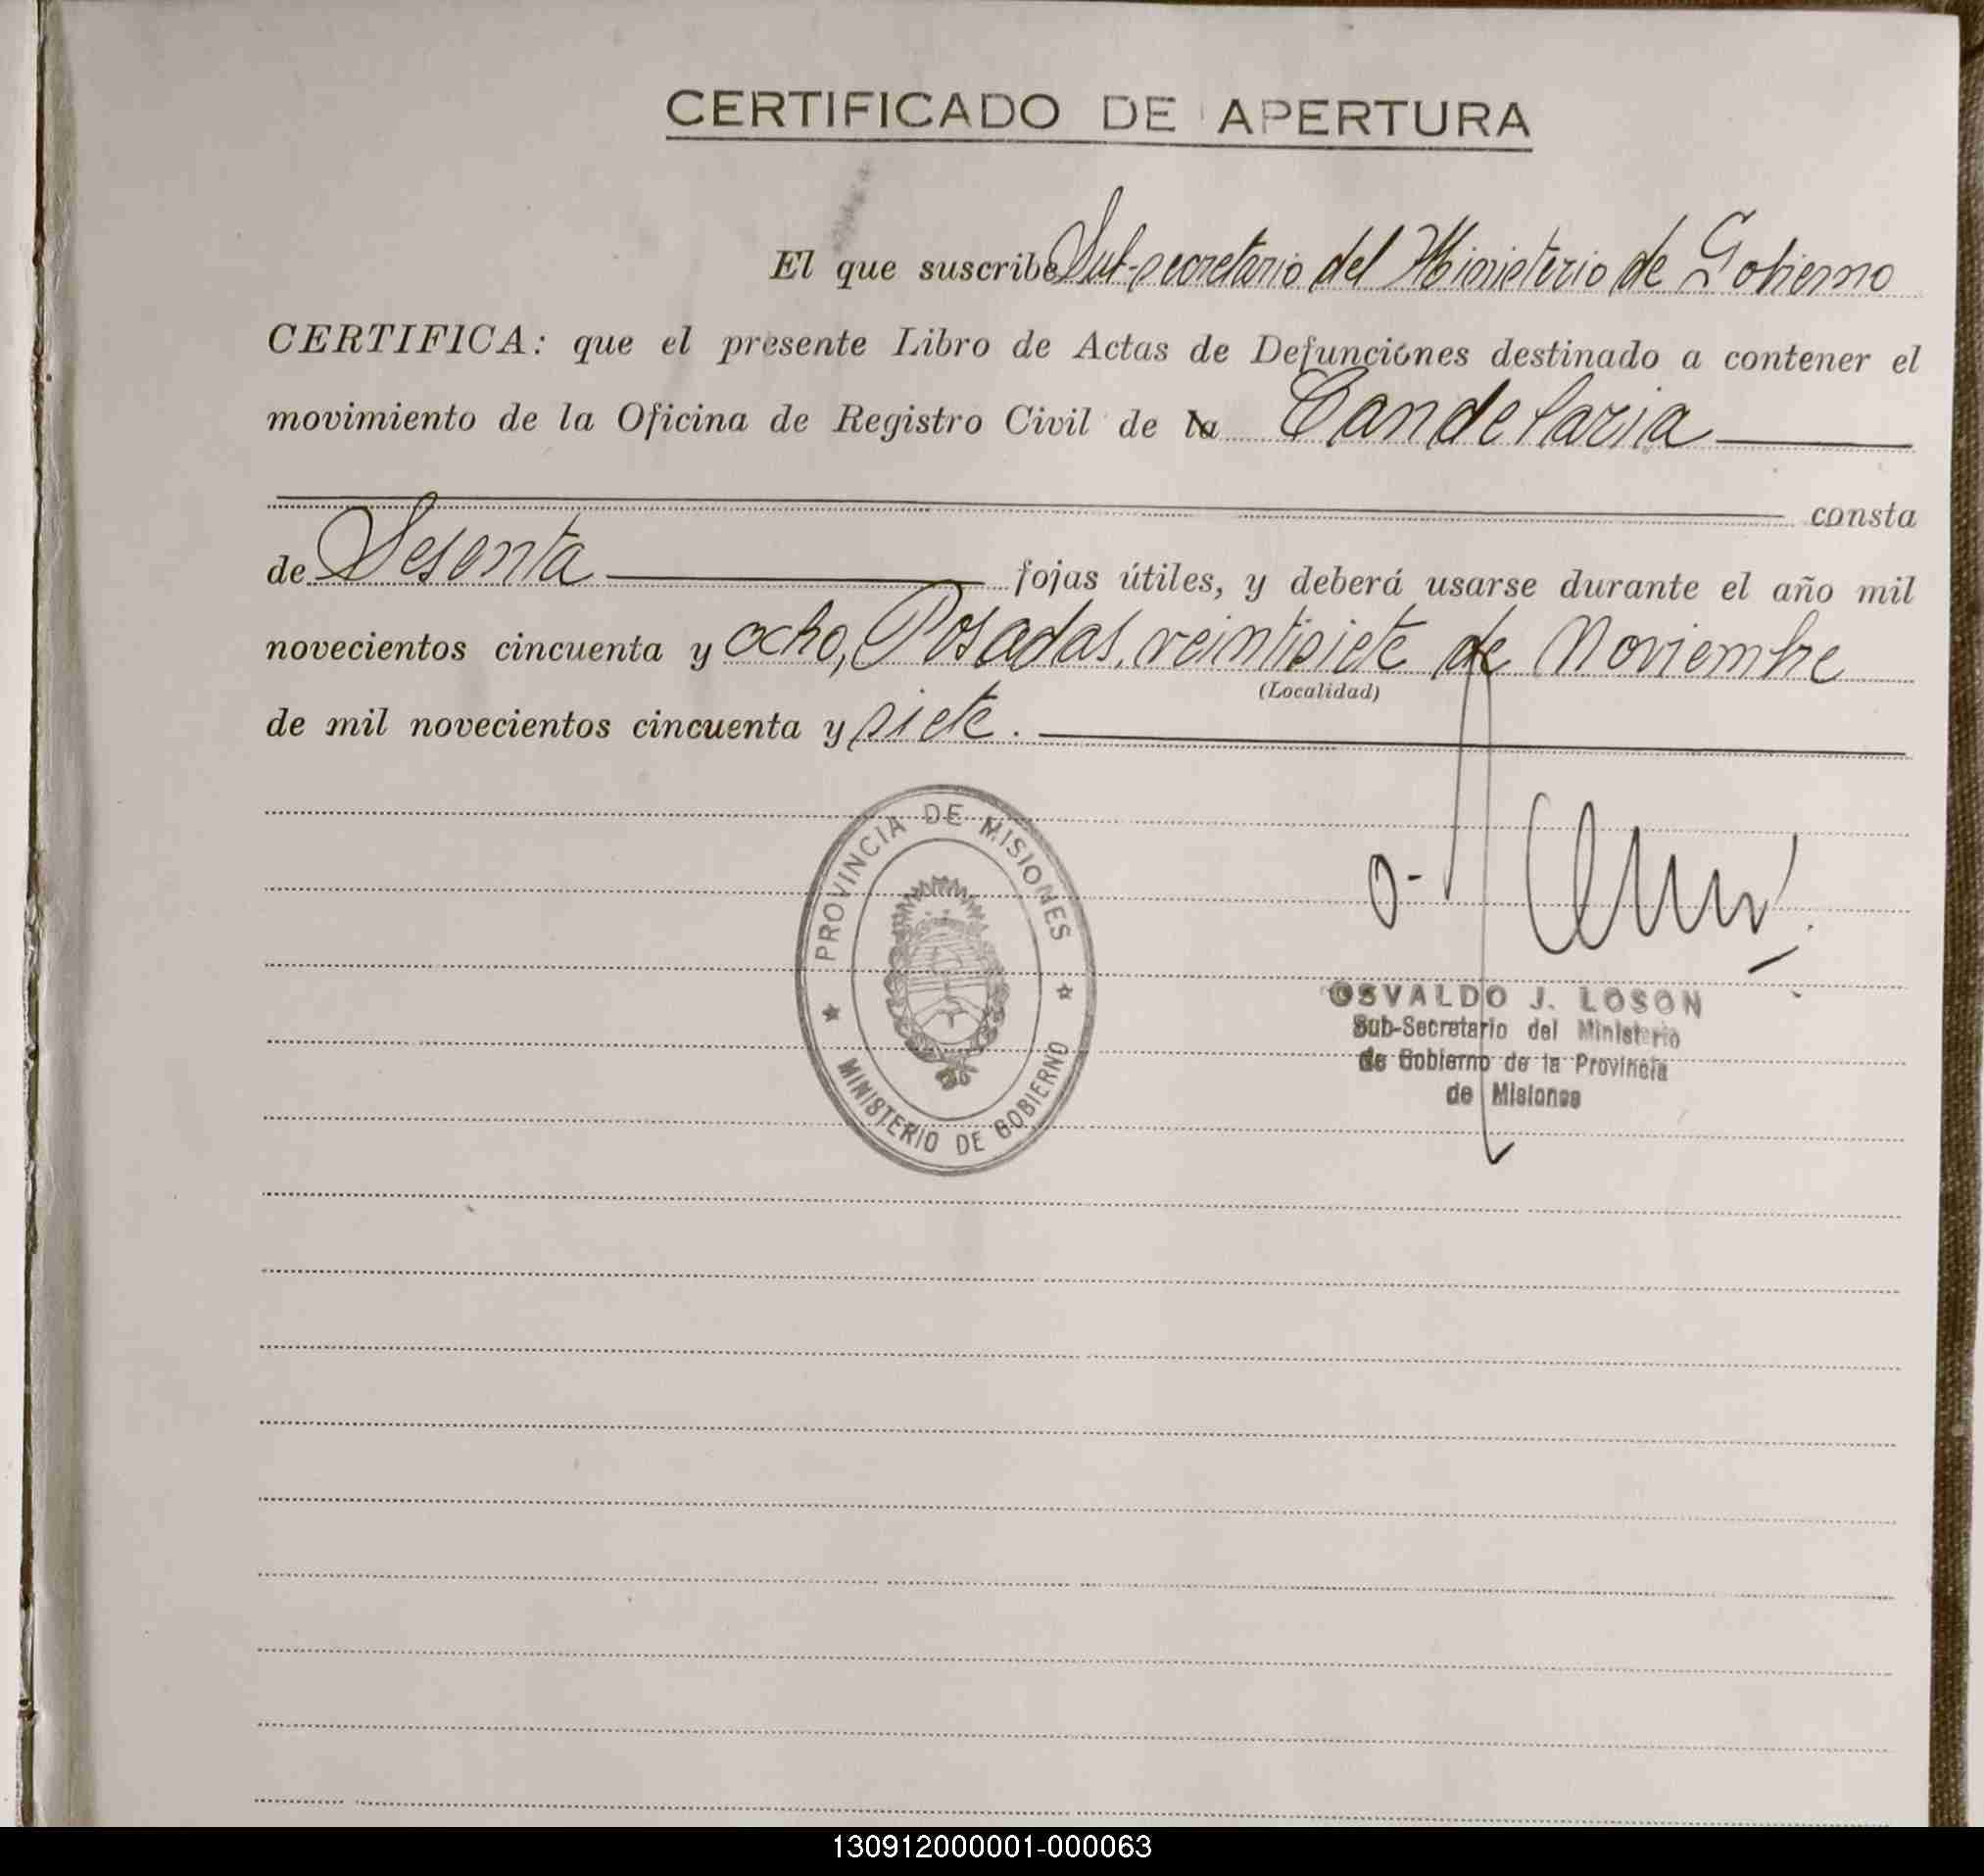 CERTIFICADO DE APERTURA
El que suscribe Sub-secretario del Ministerio de Gobierno
CERTIFICA: que el presente Libro de Actas de Defunciones destinado a contener el
movimiento de la Oficina de Registro Civil de la Candelaria
consta
de Sesenta fojas útiles, y deberá usarse durante el año mil
novecientos cincuenta y ocho, Posadas, veintisiete de Noviembre
(Localidad)
de mil novecientos cincuenta y siete.
PROVINCIA DE MISIONES
MINISTERIO DE GOBIERNO
OSVALDO J. LOSON
Sub-Secretario del Ministerio
de Gobierno de la Provincia
de Misiones
130912000001-000063